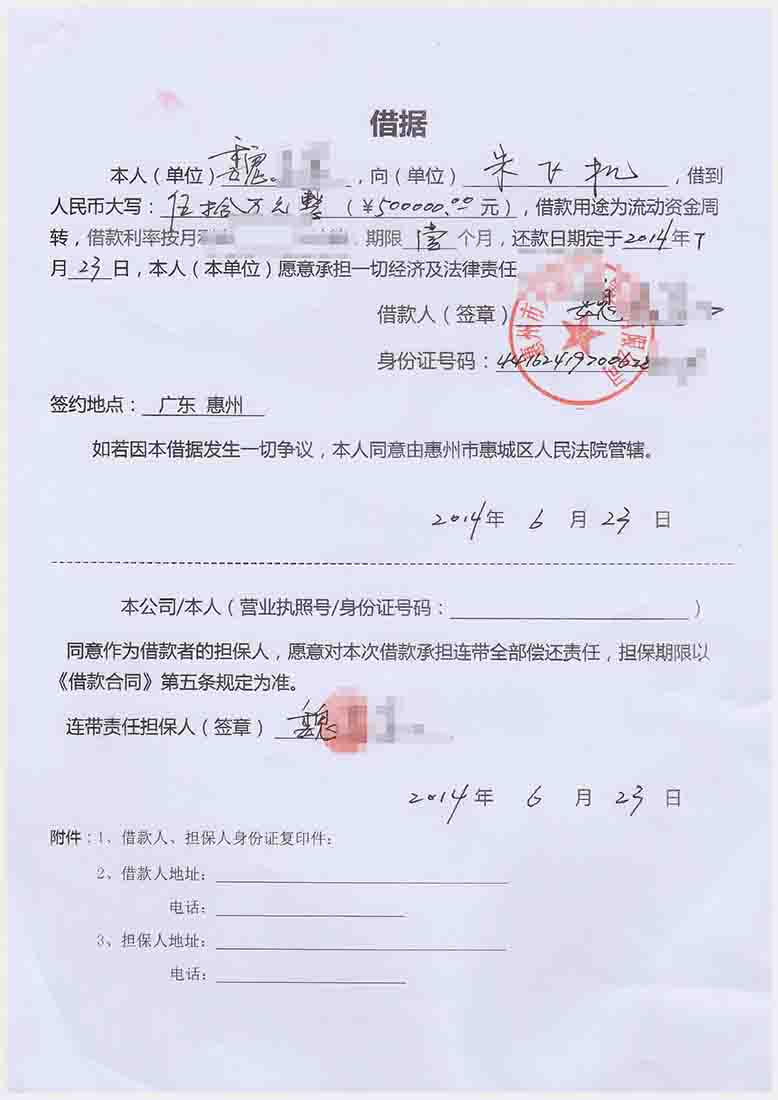 借据
本人（单位）魏 ，向（单位）朱飞机，借到
人民币大写：伍拾万元整（￥500000.00元），借款用途为流动资金周
转，借款利率按月 期限壹个月，还款日期定于2014年7
月23日，本人（本单位）愿意承担一切经济及法律责任
借款人（签章）魏
身份证号码：
惠州市 限公司
签约地点：广东 惠州
如若因本借据发生一切争议，本人同意由惠州市惠城区人民法院管辖。
2014年 6 月 23 日
本公司/本人（营业执照号/身份证号码：）
同意作为借款者的担保人，愿意对本次借款承担连带全部偿还责任，担保期限以
《借款合同》第五条规定为准。
连带责任担保人（签章）魏
2014年 6 月 23 日
附件：1、借款人、担保人身份证复印件：
2、借款人地址：
电话：
3、担保人地址：
电话：